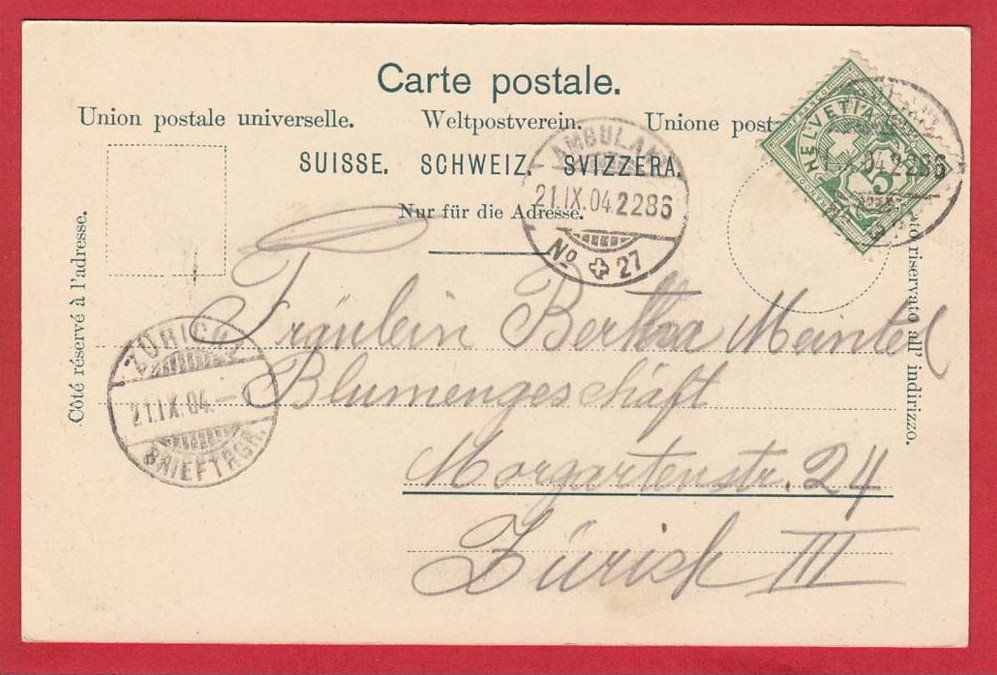 Carte postale.
Union postale universelle. Weltpostverein. Unione post
SUISSE. SCHWEIZ. SVIZZERA.
Nur für die Adresse.
Côté réservé à l'adresse.
riservato all' indirizzo.
HELVETIA
5
04 2286
AMBULANT
21.IX.04 2286
No 27
ZÜRICH
21.IX.04.-
BRIEFTRGR.
Fräulein Bertha Meintel
Blumengeschäft
Morgartenstr. 24
Zürich III